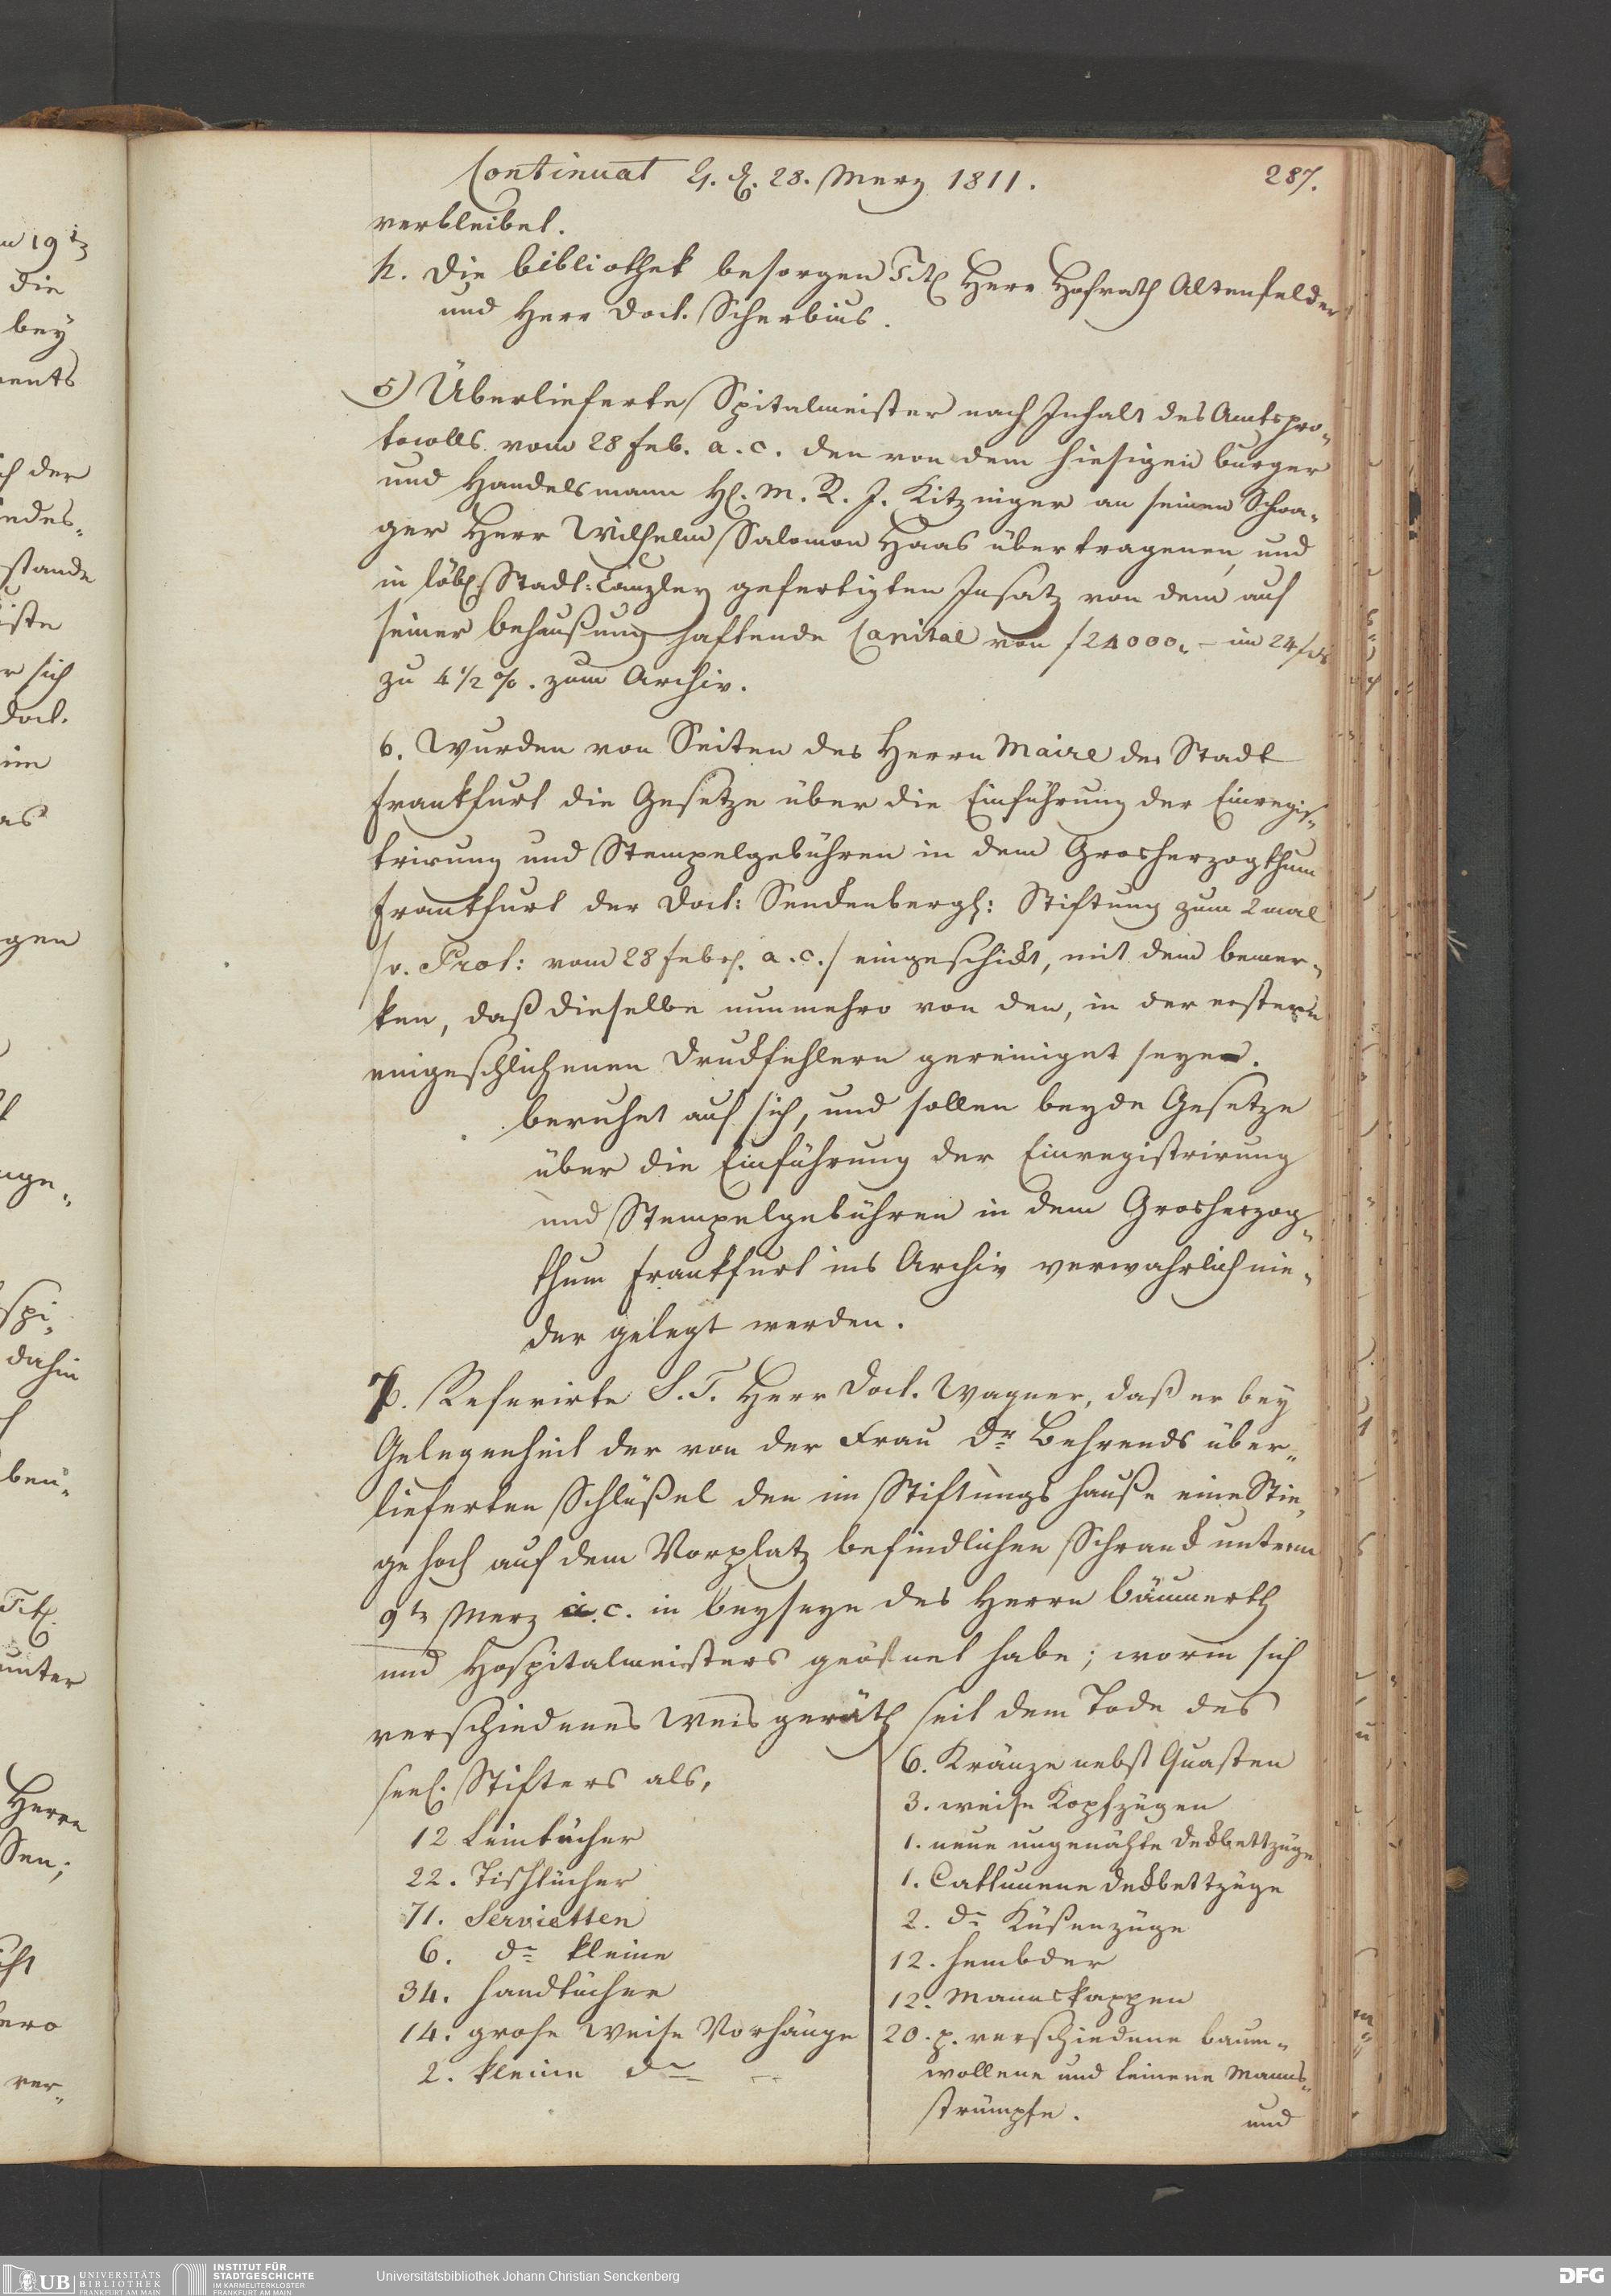 Continuat G. d. 28. Merz 1811. 287.
verbleibet.
h. Die bibliothek besorgen Titl Herr Hofrath Altenfelder
und Herr Doct. Scherbius.
5) Überlieferte Spitalmeister nach Inhalt des Amtspro„
tocolls vom 28 Feb. a. c. den von dem hiesigen burger
und Handelsmann H. M. R. J. Kitzinger an seinen Schwa„
ger Herr Wilhelm Salomon Haas übertragenen, und
in löbl. Stadt: Canzley gefertigten Insatz von dem auf
seiner behaußung haftende Capital von f 24000„ – im 24 f
zu 4 1/2 %. zum Archiv.
6. Wurden von Seiten des Herrn Maire der Stadt
Frankfurt die Gesetze über die Einführung der Einregis„
trirung und Stempelgebühren in dem Grosherzogthum
Frankfurt der Doct: Senckenbergl: Stiftung zum 2mal
/v. Prot: vom 28 Febr. a. c./ eingeschickt, mit dem bemer„
ken, daß dieselbe nunmehro von den, in der erstern
eingeschlichenen Druckfehlern gereiniget seyen.
beruhet auf sich, und sollen beyde Gesetze
über die Einführung der Einregistrirung
und Stempelgebühren in dem Grosherzog„
thum Frankfurt ins Archiv verwahrlich nie„
der gelegt werden.
7. Referirte S. T. Herr Doct. Wagner, daß er bey
Gelegenheit der von der Frau Dr Behrends über„
lieferten Schlüßel den im Stiftungs hauße eine Stie„
ge hoch auf dem Vorplatz befindlichen Schranck unterm
9ts Merz a. c. in beyseyn des Herrn bäumerth
und Hospitalmeisters geöfnet habe; worin sich
verschiedenes Weisgeräth seit dem Tode des
seel. Stifters als,
12 Leintücher
22. Tischtücher
71. Servietten
6. do kleine
34. Handtücher
14. grose weise Vorhänge
2. kleine do
6. Kränze nebst Quasten
3. weise Kopfzügen
1. neue ungenähte Deckbettzüge
1. Cattunene Deckbettzüge
2. do Küßenzüge
12. hembder
12. Mannskappen
20. p. verschiedene baum„
wollene und leinene Manns„
strümpfe.
und
UB UNIVERSITÄTS
BIBLIOTHEK
FRANKFURT AM MAIN
INSTITUT FÜR
STADTGESCHICHTE
IM KARMELITERKLOSTER
FRANKFURT AM MAIN
Universitätsbibliothek Johann Christian Senckenberg
DFG